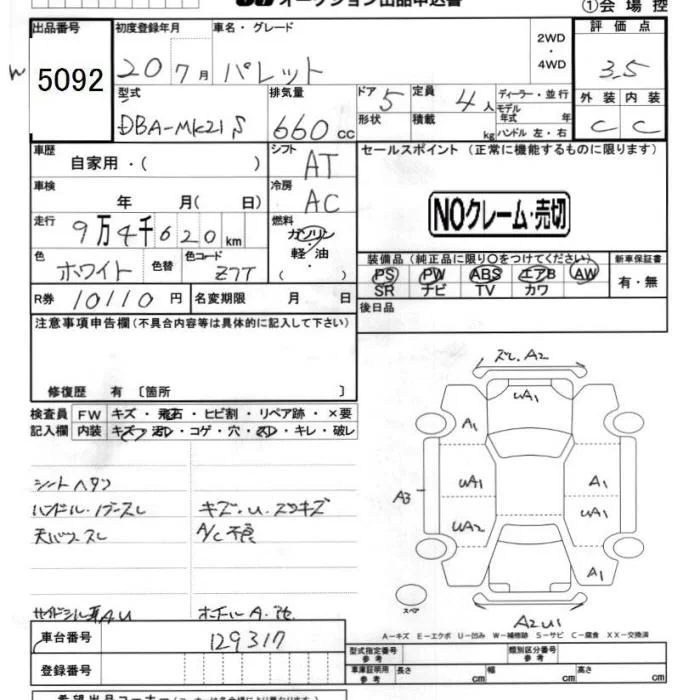 オークション出品申込書
①会場控
出品番号 初度登録年月 車名・グレード 2WD・4WD 評価点
5092 20 7月 パレット 3.5
型式 排気量 ドア 定員 ディーラー・並行 外装 内装
DBA-MK21S 660cc 5 4人 モデル年式 年 C C
形状 積載 kg ハンドル 左・右
車歴 自家用・( ) シフト AT セールスポイント (正常に機能するものに限ります)
車検 年 月( 日) 冷房 AC
NOクレーム・売切
走行 9万4千620km 燃料 ガソリン・軽油・( )
色 ホワイト 色替 色コード Z7T
装備品 (純正品に限り○をつけてください) 新車保証書
PS PW ABS エアB AW 有・無
SR ナビ TV カワ
R券 10110円 名変期限 月 日 後日品
注意事項申告欄(不具合内容等は具体的に記入して下さい)
修復歴 有 〔箇所 〕
検査員 FW キズ・飛石・ヒビ割・リペア跡・×要
記入欄 内装 キズ・汚れ・コゲ・穴・スレ・キレ・破レ
シートヘタリ
ハンドル・ノブスレ キズ・U・スリキズ
天バリスレ A/C不良
A U ホイール A
ズレ.A2
UA1
A1
UA1 A1
A3
UA2 UA1
A1
スペア
A2U1
A-キズ E-エクボ U-凹み W-補修跡 S-サビ C-腐食 XX-交換済
車台番号 129317 型式指定番号 参考 類別区分番号 参考
登録番号 車庫証明用 参考 長さ cm 幅 cm 高さ cm